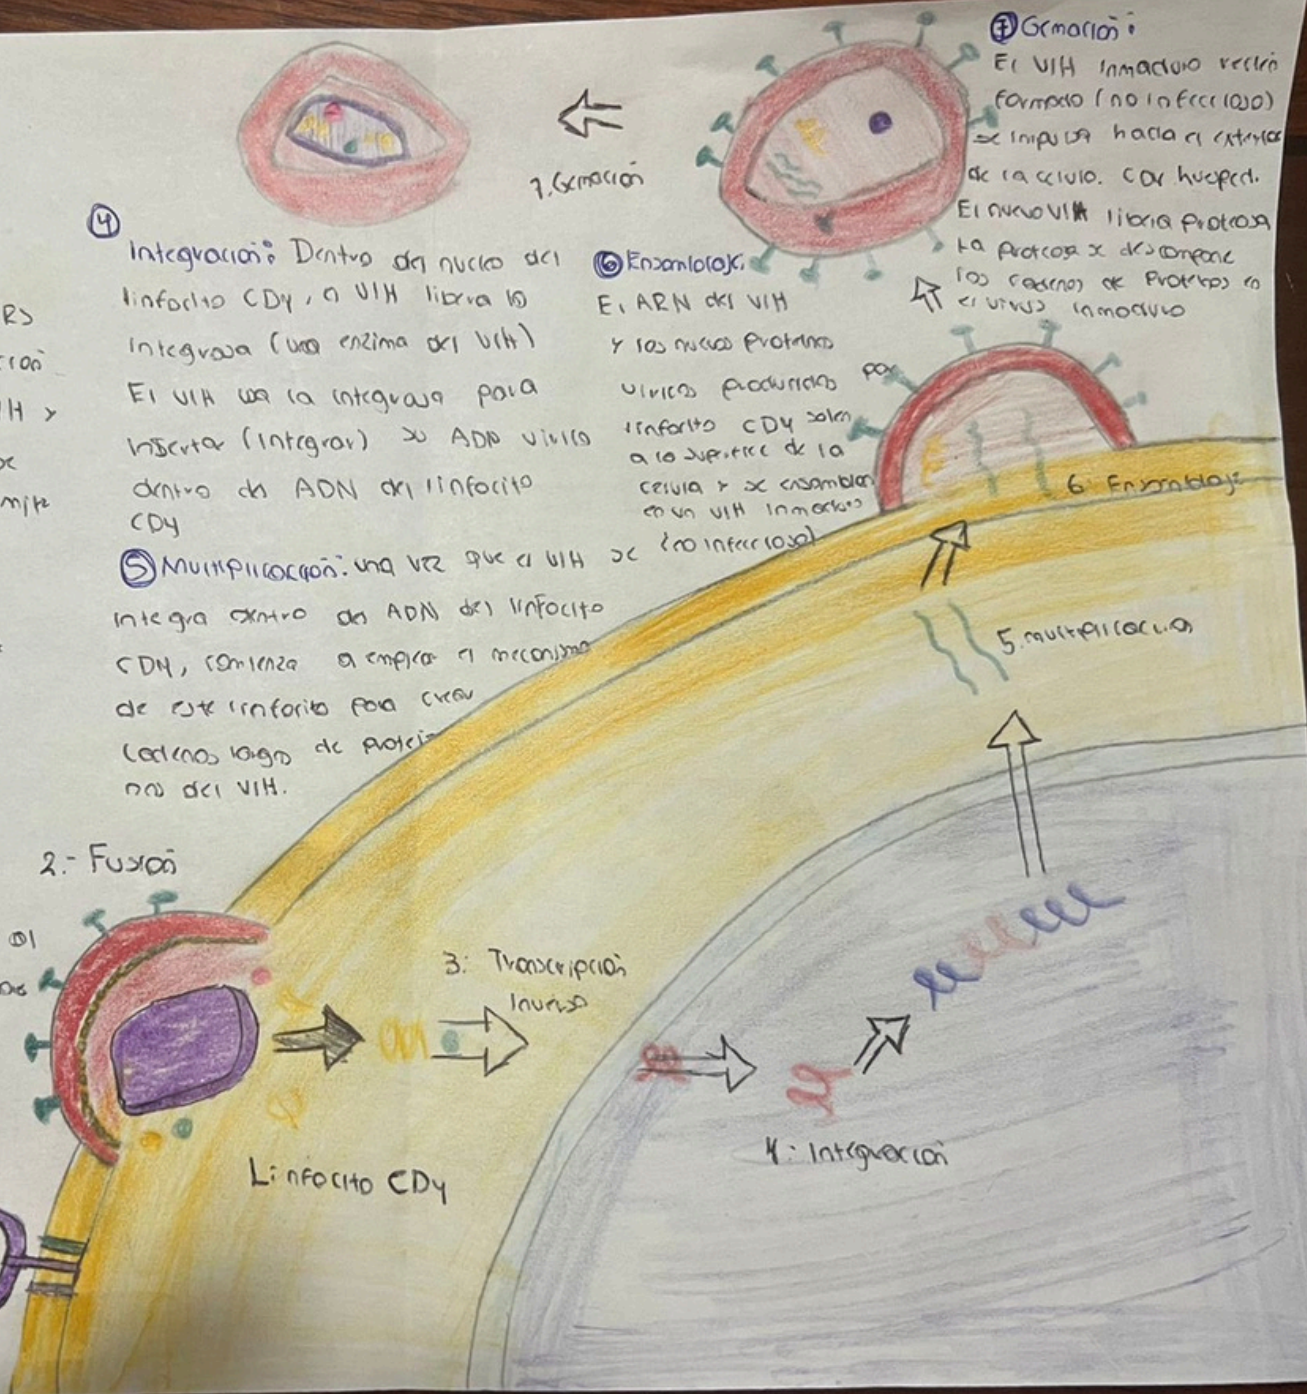 7 Gemación:
El VIH inmaduro recién
formado (no infeccioso)
se impulsa hacia el exterior
de la célula. CD4 huésped.
El nuevo VIH libera proteasa
La proteasa descompone
los cadenas de proteínas en
el virus inmaduro
7. Gemación
4
Integración: Dentro del nucleo del
linfocito CD4, el VIH libera la
integrasa (una enzima del VIH)
El VIH usa la integrasa para
insertar (integrar) su ADN vírico
dentro del ADN del linfocito
CD4
6 Ensamblaje.
El ARN del VIH
y las nuevas proteínas
víricas producidas por
linfocito CD4 salen
a la superficie de la
celula y se ensamblan
en un VIH inmaduro
(no infeccioso)
5 Multiplicación: una vez que el VIH se
integra dentro del ADN del linfocito
CD4, comienza a emplear el mecanismo
de este linfocito para crear
cadenas largas de proteí
nas del VIH.
RS
ción
IH y
se
mite
2.- Fusión
al
6 Ensamblaje
5. multiplicación
3: Transcripción
Inversa
4: Integración
Linfocito CD4